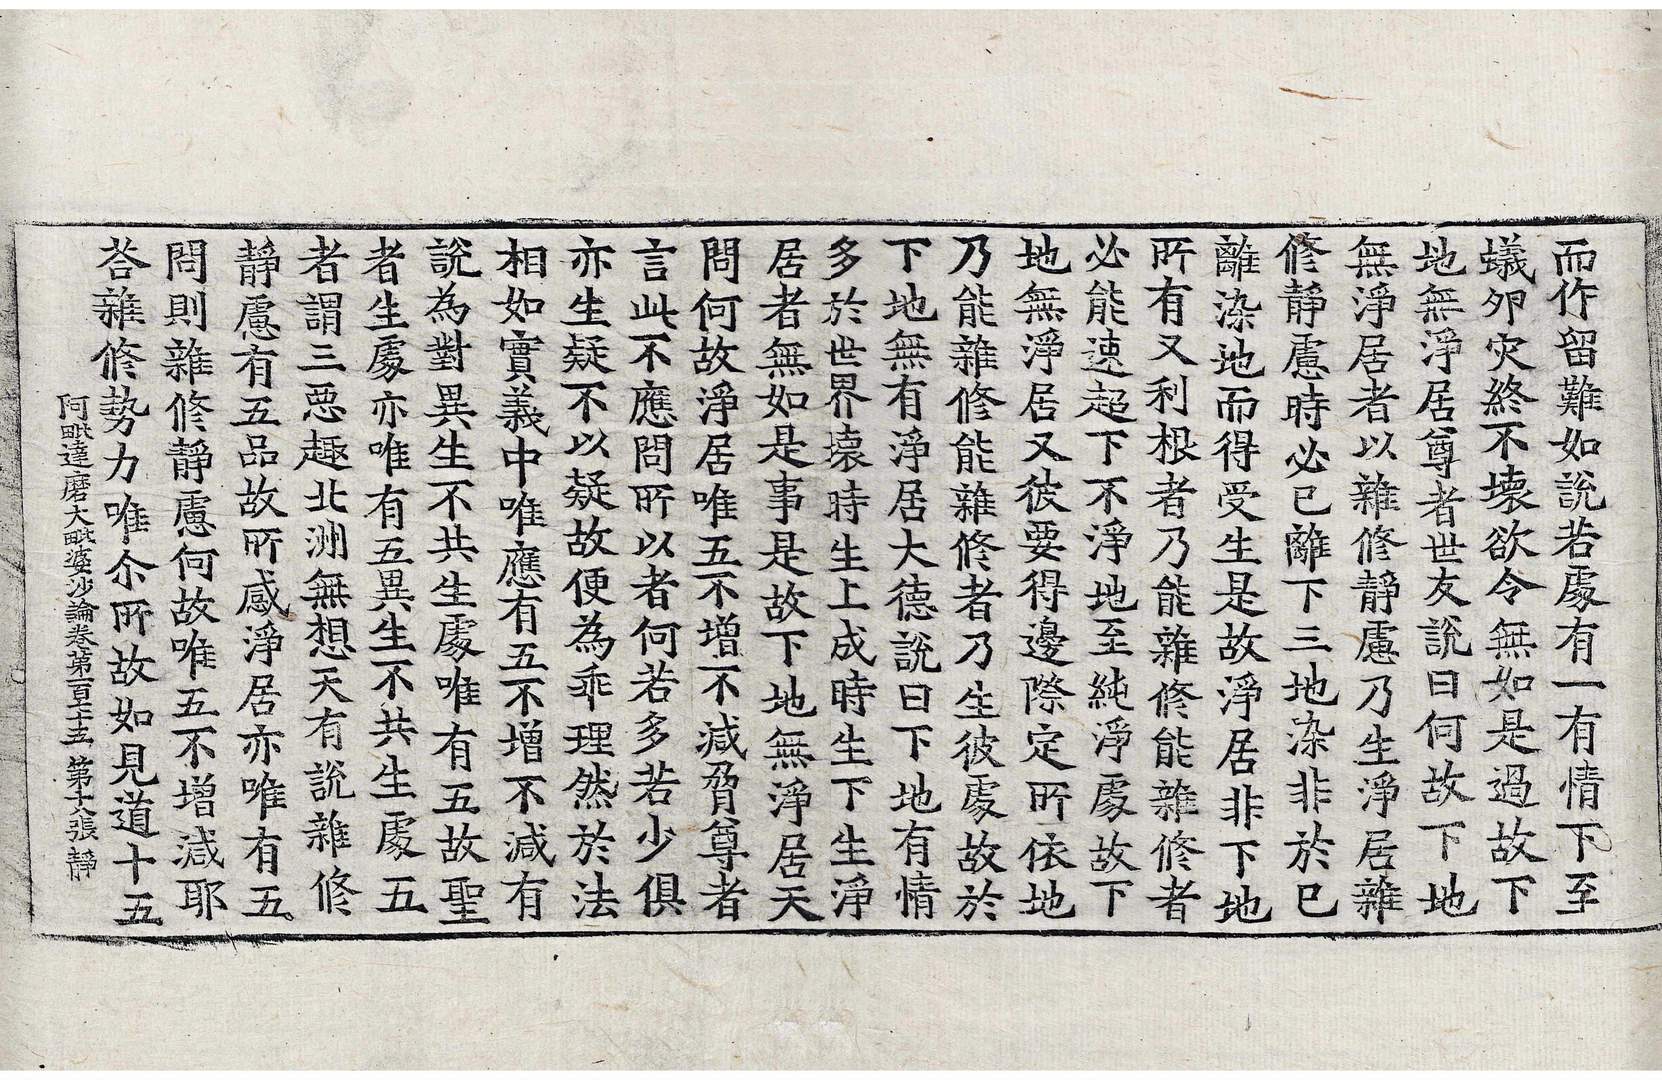 而作留難如說若處有一有情下至
蟻卵灾終不壞欲令無如是過故下
地無淨居尊者世友說曰何故下地
無淨居者以雜修靜慮乃生淨居雜
修靜慮時必已離下三地染非於已
離染地而得受生是故淨居非下地
所有又利根者乃能雜修能雜修者
必能速超下不淨地至純淨處故下
地無淨居又彼要得邊際定所依地
乃能雜修能雜修者乃生彼處故於
下地無有淨居大德說曰下地有情
多於世界壞時生上成時生下生淨
居者無如是事是故下地無淨居天
問何故淨居唯五不增不減脅尊者
言此不應問所以者何若多若少俱
亦生疑不以疑故便為乖理然於法
相如實義中唯應有五不增不減有
說為對異生不共生處唯有五故聖
者生處亦唯有五異生不共生處五
者謂三惡趣北洲無想天有說雜修
靜慮有五品故所感淨居亦唯有五
問則雜修靜慮何故唯五不增減耶
荅雜修勢力唯尒所故如見道十五
阿毗達磨大毗婆沙論卷第一百七十五 第十六張 靜